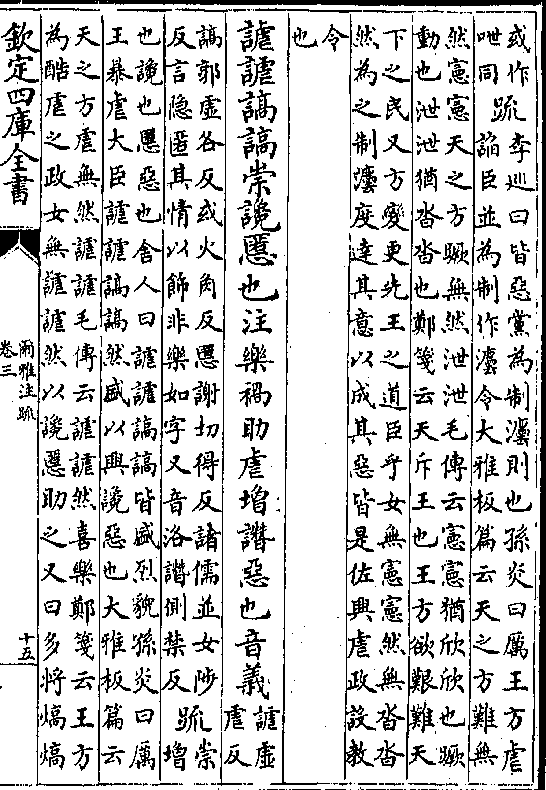 或作
呭同 䟽 李巡曰皆惡黨為制灋則也孫炎曰厲王方虐
謟臣並為制作灋令大雅板篇云天之方難無
然憲憲天之方蹶無然泄泄毛傳云憲憲猶欣欣也蹶
動也泄泄猶沓沓也鄭箋云天斥王也王方欲艱難天
下之民又方變更先王之道臣乎女無憲憲然無沓沓
然為之制灋度達其意以成其惡皆是佐興虐政設教
令
也
謔謔謞謞崇讒慝也注樂禍助虐增譖惡也音義 謔虛
虐反
謞郭虛各反或火角反慝謝切得反諸儒並女陟
反言隐匿其情以飾非樂如字又音洛譖側禁反 䟽 崇
增
也讒也慝惡也舍人曰謔謔謞謞皆盛烈貌孫炎曰厲
王暴虐大臣謔謔謞謞然盛以興讒惡也大雅板篇云
天之方虐無然謔謔毛傳云謔謔然喜樂鄭箋云王方
為酷虐之政女無謔謔然以讒慝助之又曰多將熇熇
欽定四庫全書
爾雅注䟽
卷三
十五